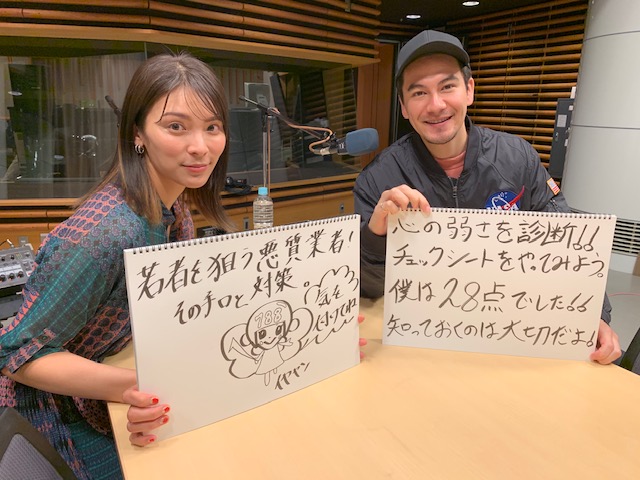 若者を狙う悪質業者!
その手口と対策。
788
気を
付けてね
イヤヤン
心の弱さを診断!!
チェックシートをやってみよう。
僕は28点でした!!
知っておくのは大切だよ!